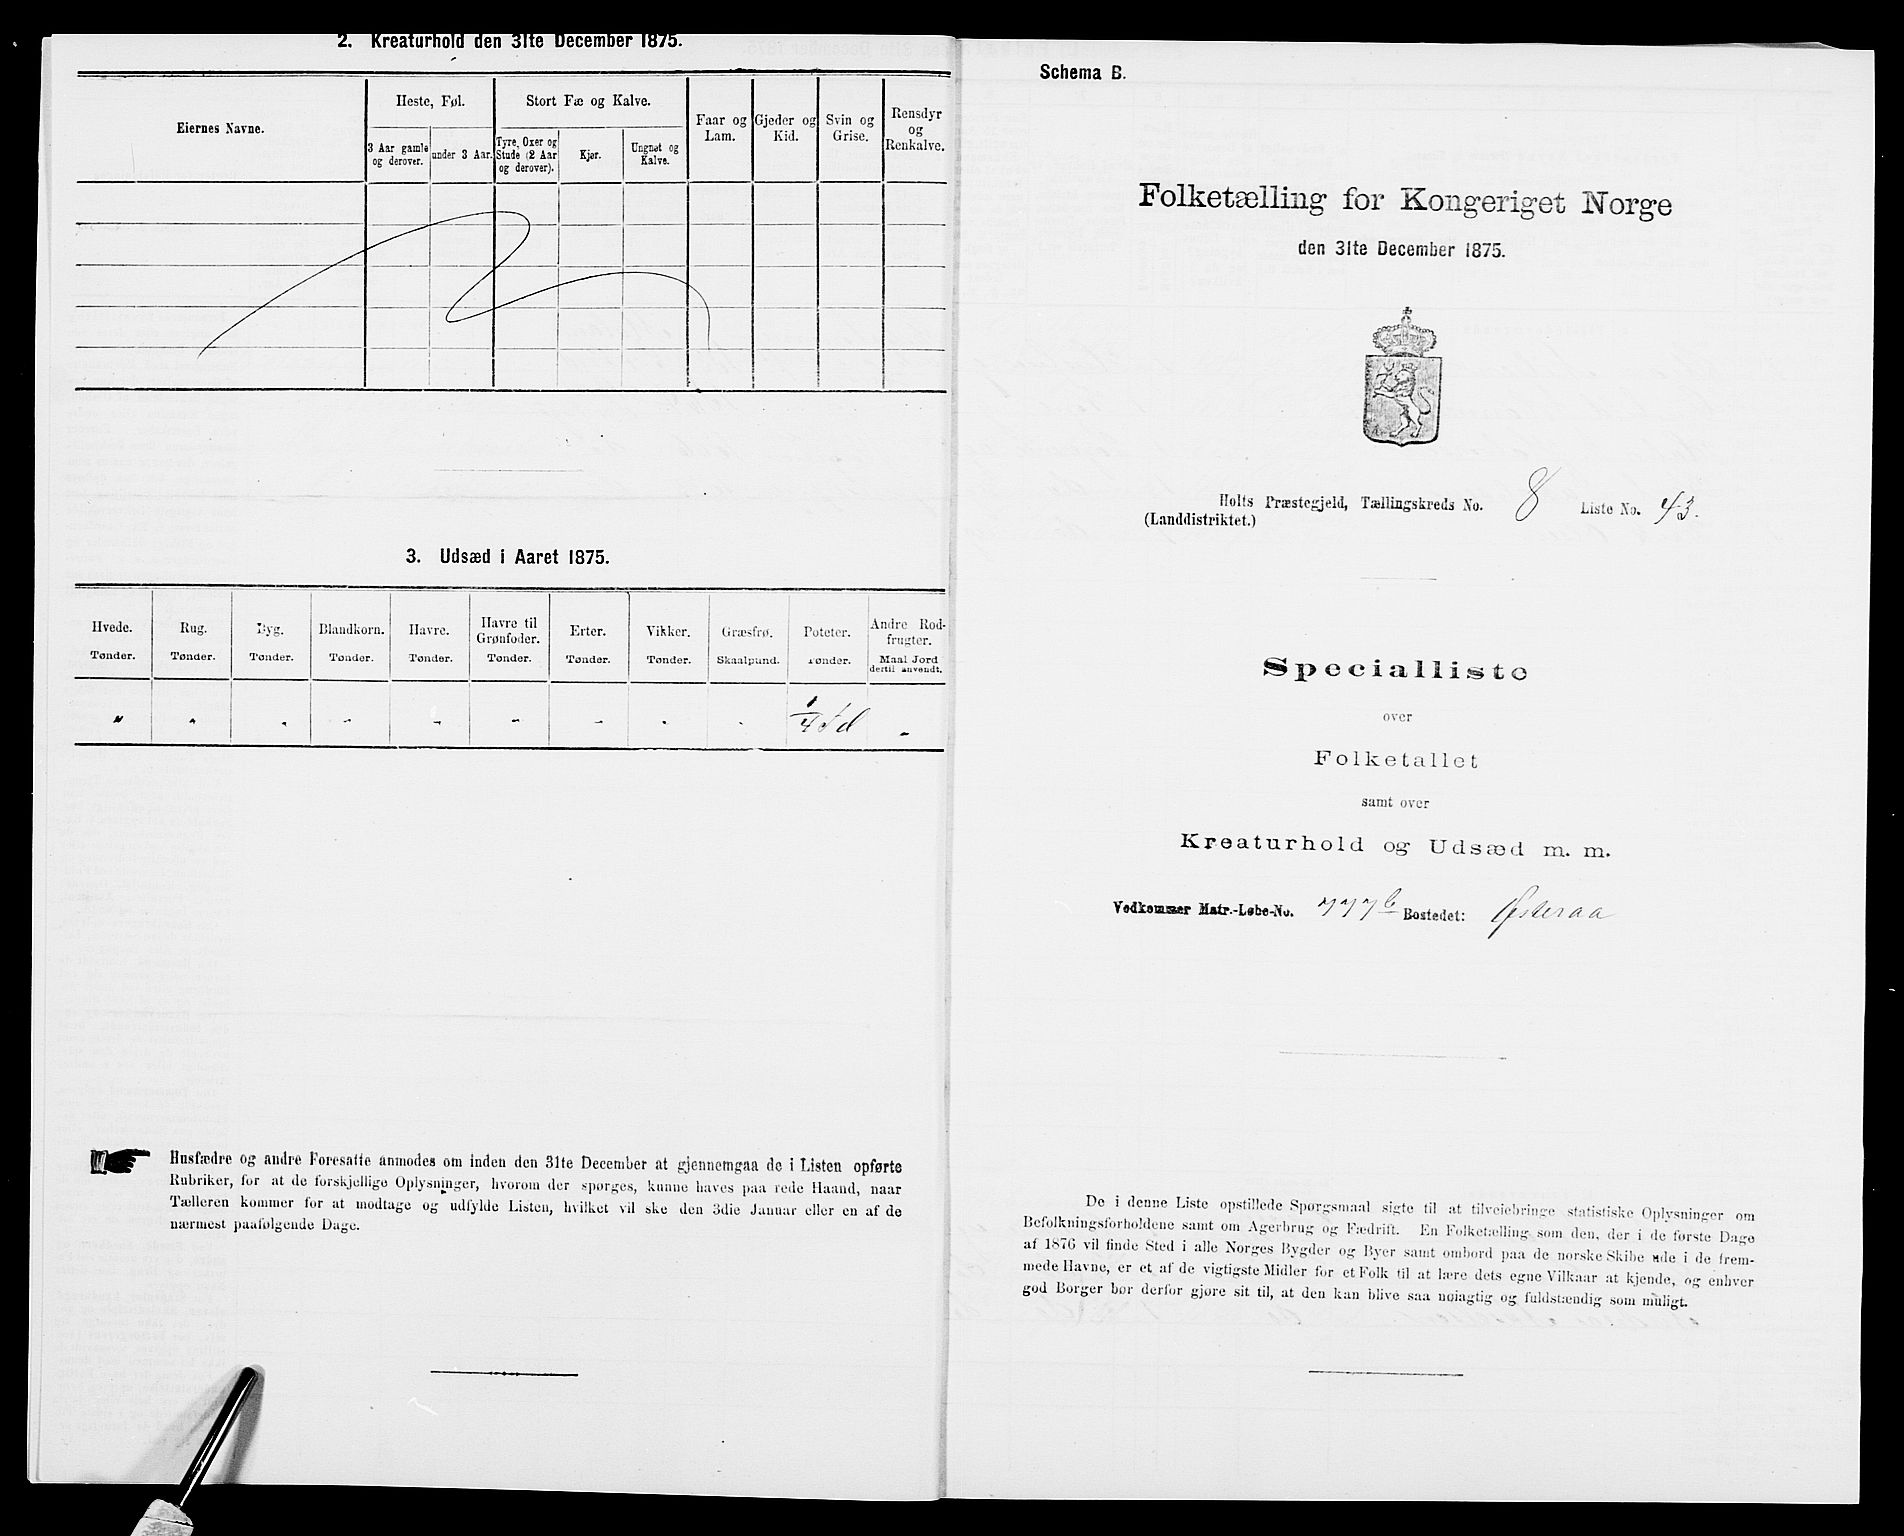 2. Kreaturhold den 31te December 1875.
Eiernes Navne.
Heste, Føl.
Stort Fæ og Kalve.
Faar og
Lam.
Gjeder og
Kid.
Svin og
Grise.
Rensdyr
og
Renkalve.
3 Aar gamle
og derover.
under 3 Aar.
Tyre, Oxer og
Stude (2 Aar
og derover).
Kjør.
Ungnøt og
Kalve.
3. Udsæd i Aaret 1875.
Hvede.
Tønder.
Rug.
Tønder.
Byg.
Tønder.
Blandkorn.
Tønder.
Havre.
Tønder.
Havre til
Grønfoder.
Tønder.
Erter.
Tønder.
Vikker.
Tønder.
Græsfrø.
Skaalpund.
Poteter.
Tønder.
Andre Rod-
frugter.
Maal Jord
dertil anvendt.
" " " " " " " " " 1/4 Td "
Husfædre og andre Foresatte anmodes om inden den 31te December at gjennemgaa de i Listen opførte
Rubriker, for at de forskjellige Oplysninger, hvorom der spørges, kunne haves paa rede Haand, naar
Tælleren kommer for at modtage og udfylde Listen, hvilket vil ske den 3die Januar eller en af de
nærmest paafølgende Dage.
Schema B.
Folketælling for Kongeriget Norge
den 31te December 1875.
Holts Præstegjeld, Tællingskreds No. 8 Liste No. 43.
(Landdistriktet.)
Specialliste
over
Folketallet
samt over
Kreaturhold og Udsæd m. m.
Vedkommer Matr.-Løbe-No. 777b Bostedet: Østeraa
De i denne Liste opstillede Spørgsmaal sigte til at tilveiebringe statistiske Oplysninger om
Befolkningsforholdene samt om Agerbrug og Fædrift. En Folketælling som den, der i de første Dage
af 1876 vil finde Sted i alle Norges Bygder og Byer samt ombord paa de norske Skibe ude i de frem-
mede Havne, er et af de vigtigste Midler for et Folk til at lære dets egne Vilkaar at kjende, og enhver
god Borger bør derfor gjøre sit til, at den kan blive saa nøiagtig og fuldstændig som muligt.